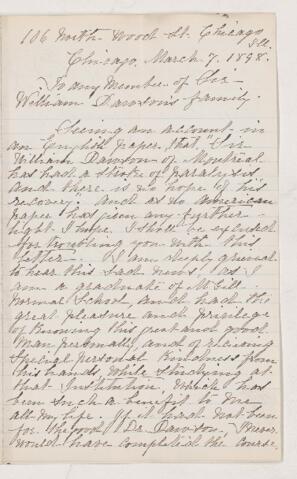 106 North Wood St. Chicago
Ill.
Chicago, March 7. 1898.
To any Member of Sir
William Dawson's family.
Seeing an account in
an English paper, that "Sir
William Dawson of Montreal
has had a stroke of paralysis
and there is no hope of his
recovery" and as no American
paper has given any further
light I hope I shall be excused
for troubling you with this
letter. I am deeply grieved
to hear this sad news, as I
am a graduate of McGill
Normal School, and had the
great pleasure and privilege
of knowing this great and good
man personally, and of receiving
special personal kindness from
his hands while studying at
that Institution, which has
been such a benefit to me
all my life. If it had not been
for the good Dr. Dawson, I never
would have completed the course